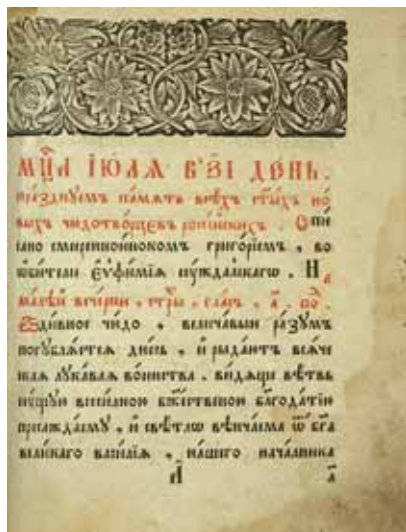 мц҃а і҆ю́лѧ в҃ зі де́нь .
пра́зднꙋемъ па́мѧть всѣ́хъ ст҃ы́хъ но
выхъ чюдотво́рцевъ росі́йскихъ . Спи
сано смиреннои́нокомъ григо́ріемъ , во
ѡ҆би́тели є҆ѵфи́міѧ сꙋждалскагѡ . На
ма́лѣй вече́рни , стры̑ , гла́съ , а҃ . по̑
дивное чю́до , велича́выи ра́зꙋмъ
погꙋблѧ́етсѧ дне́сь , и҆ рыда́ютъ всѧ́че
скаѧ лꙋка́ваѧ во́инства . ви́дѧще вѣ́твь
всеси́лною бж҃е́ственою бл҃года́тїю
и҆ свѣ́тлѡ вѣнча́ема ѿ бг҃а
вели́каго васи́лїѧ , на́шего нача́лника
а҃